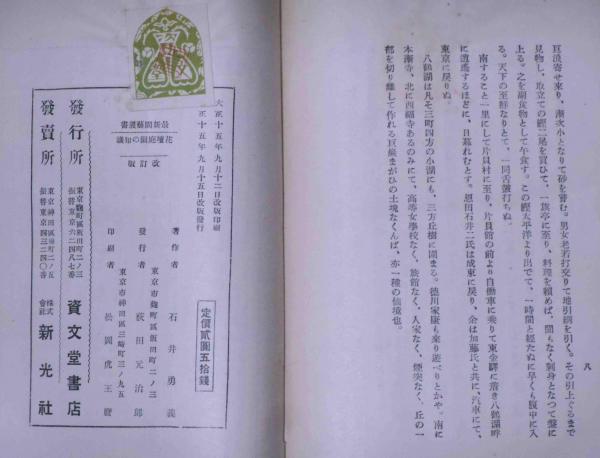 八
亘濤寄せ來り、漸次小となりて砂を嘗む。男女老若打交りて地引網を引く。その引上ぐるまで
見物し、取立ての鰹二尾を買ひて、一旗亭に至り、料理を頼めば、間もなく刺身となつて盤に
上る。之を副食物として午食す。この鰹太平洋より出でて、一時間と經たぬに早くも腹中に入
る。天下の至鮮なりとて、一同舌皷打ちぬ。
南すること一里にして片貝村に至り、片貝館の前より自働車に乘りて東金驛に着き八鶴湖畔
に逍遙するほどに、日暮れむとす。恩田石井二氏は成東に戻り、余は加藤氏と共に、汽車にて、
東京に戾りぬ。
八鶴湖は凡そ三町四方の小湖にも、三方丘樹に圍まる。德川家康も來り遊べりとかや。南に
本漸寺、北に西福寺あるのみにて、高等女學校なく、旅館なく、人家なく、煙突なく、丘の一
部を切り離して作れる亘巖まがひの土塊なくんば、亦一種の仙境也。
大正十五年九月十二日改版印刷
正十五年九月十五日改版發行
最新園藝叢書
花壇庭園の知識
改訂版
定價貳圓五拾錢
著作者 石井勇義
東京市麹町區飯田町二ノ三
發行者 荻田元治郎
東京市神田區三崎町三ノ九五
印刷者 松岡虎王麿
發行所
東京麹町區飯田町二ノ三
振替東京六二四八七番
資文堂書店
發賣所
東京神田區錦町二ノ五
振替東京四三二四〇番
株式會社 新光社